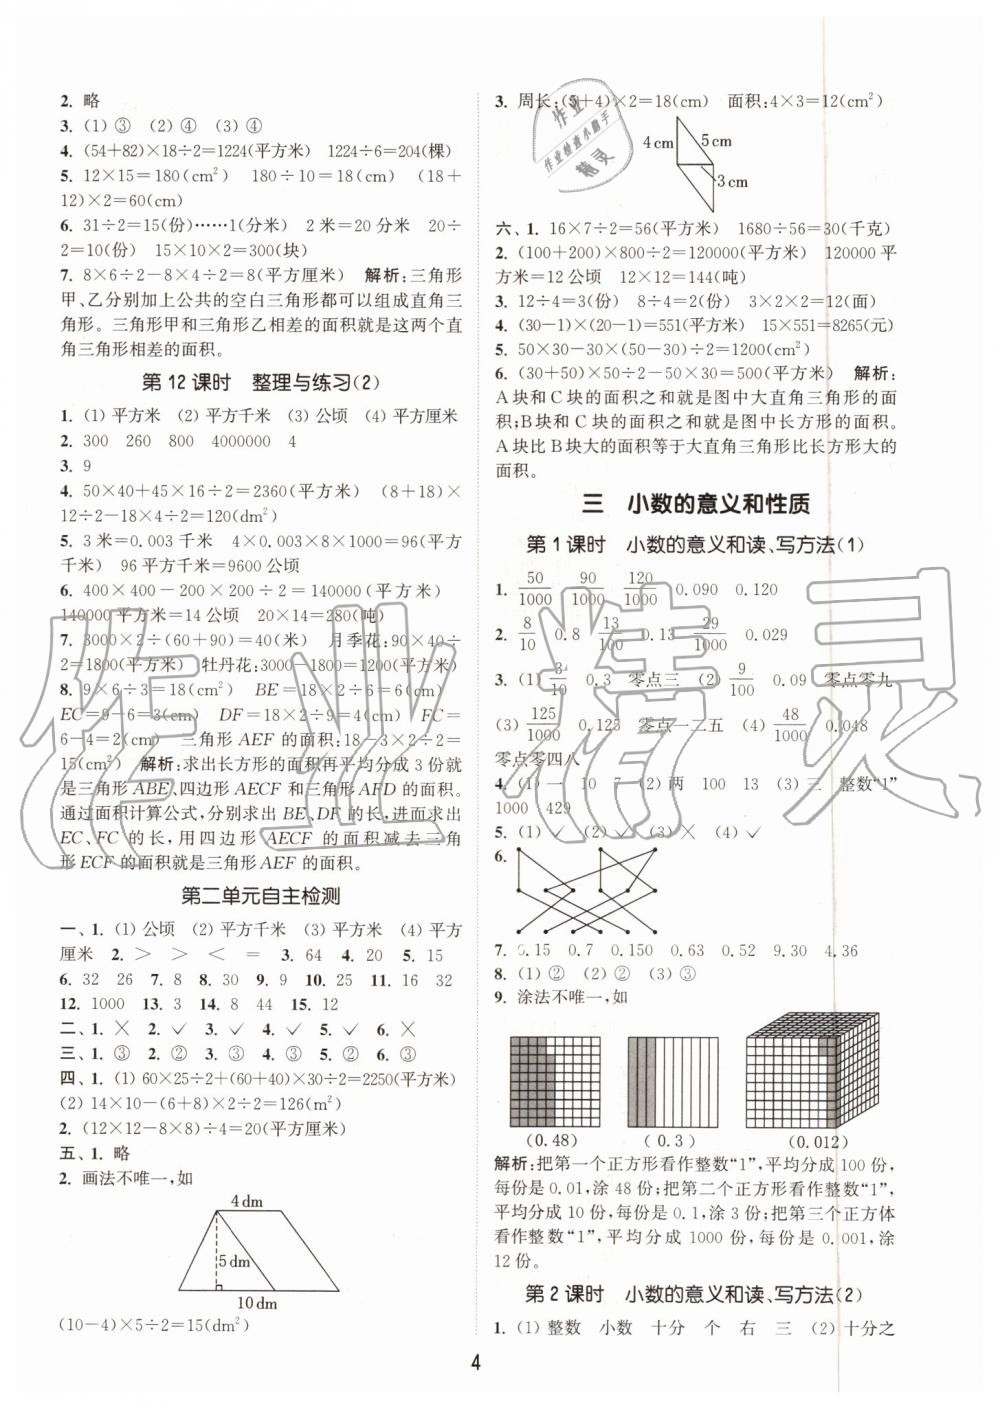 2. 略
3. (1) ③ (2) ④ (3) ④
4. (54+82)×18÷2=1224(平方米) 1224÷6=204(棵)
5. 12×15=180(cm²) 180÷10=18(cm) (18+
12)×2=60(cm)
6. 31÷2=15(份)……1(分米) 2米=20分米 20÷
2=10(份) 15×10×2=300(块)
7. 8×6÷2-8×4÷2=8(平方厘米) 解析:三角形
甲、乙分别加上公共的空白三角形都可以组成直角三
角形。三角形甲和三角形乙相差的面积就是这两个直
角三角形相差的面积。
第12课时 整理与练习(2)
1. (1) 平方米 (2) 平方千米 (3) 公顷 (4) 平方厘米
2. 300 260 800 4000000 4
3. 9
4. 50×40+45×16÷2=2360(平方米) (8+18)×
12÷2-18×4÷2=120(dm²)
5. 3米=0.003千米 4×0.003×8×1000=96(平方
千米) 96平方千米=9600公顷
6. 400×400-200×200÷2=140000(平方米)
140000平方米=14公顷 20×14=280(吨)
7. 3000×2÷(60+90)=40(米) 月季花:90×40÷
2=1800(平方米) 牡丹花:3000-1800=1200(平方米)
8. 9×6÷3=18(cm²) BE=18×2÷6=6(cm)
EC=9-6=3(cm) DF=18×2÷9=4(cm) FC=
6-4=2(cm) 三角形AEF的面积:18-3×2÷2=
15(cm²) 解析:求出长方形的面积再平均分成3份就
是三角形ABE、四边形AECF和三角形AFD的面积。
通过面积计算公式,分别求出BE、DF的长,进而求出
EC、FC的长,用四边形AECF的面积减去三角
形ECF的面积就是三角形AEF的面积。
第二单元自主检测
一、1. (1) 公顷 (2) 平方千米 (3) 平方米 (4) 平方
厘米 2. > > < = 3. 64 4. 20 5. 15
6. 32 26 7. 8 8. 30 9. 9 10. 25 11. 16 32
12. 1000 13. 3 14. 8 44 15. 12
二、1. × 2. ✓ 3. ✓ 4. ✓ 5. ✓ 6. ×
三、1. ③ 2. ② 3. ③ 4. ③ 5. ② 6. ③
四、1. (1) 60×25÷2+(60+40)×30÷2=2250(平方米)
(2) 14×10-(6+8)×2÷2=126(m²)
2. (12×12-8×8)÷4=20(平方厘米)
五、1. 略
2. 画法不唯一,如
4 dm
5 dm
10 dm
(10-4)×5÷2=15(dm²)
3. 周长:(5+4)×2=18(cm) 面积:4×3=12(cm²)
4 cm 5 cm
3 cm
六、1. 16×7÷2=56(平方米) 1680÷56=30(千克)
2. (100+200)×800÷2=120000(平方米) 120000平
方米=12公顷 12×12=144(吨)
3. 12÷4=3(份) 8÷4=2(份) 3×2×2=12(面)
4. (30-1)×(20-1)=551(平方米) 15×551=8265(元)
5. 50×30-30×(50-30)÷2=1200(cm²)
6. (30+50)×50÷2-50×30=500(平方米) 解析:
A块和C块的面积之和就是图中大直角三角形的面
积;B块和C块的面积之和就是图中长方形的面积。
A块比B块大的面积等于大直角三角形比长方形大的
面积。
三 小数的意义和性质
第1课时 小数的意义和读、写方法(1)
1. 50/1000 90/1000 120/1000 0.090 0.120
2. 8/10 0.8 13/100 0.13 29/1000 0.029
3. (1) 3/10 0.3 零点三 (2) 9/100 0.09 零点零九
(3) 125/1000 0.125 零点一二五 (4) 48/1000 0.048
零点零四八
4. (1) 一 10 7 (2) 两 100 13 (3) 三 整数“1”
1000 429
5. (1) ✓ (2) ✓ (3) × (4) ✓
6.
7. 0.15 0.7 0.150 0.63 0.52 9.30 4.36
8. (1) ② (2) ② (3) ③
9. 涂法不唯一,如
(0.48) (0.3) (0.012)
解析:把第一个正方形看作整数“1”,平均分成100份,
每份是0.01,涂48份;把第二个正方形看作整数“1”,
平均分成10份,每份是0.1,涂3份;把第三个正方体
看作整数“1”,平均分成1000份,每份是0.001,涂
12份。
第2课时 小数的意义和读、写方法(2)
1. (1) 整数 小数 十分 个 右 三 (2) 十分之
4
作业
作业检查小助手
精灵
作业精灵